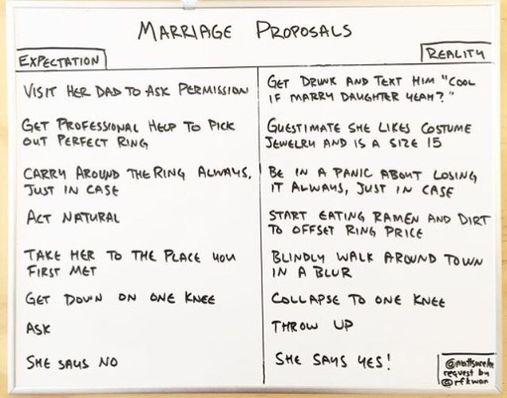 MARRIAGE PROPOSALS
EXPECTATION
VISIT HER DAD TO ASK PERMISSION
GET PROFESSIONAL HELP TO PICK
OUT PERFECT RING
CARRY AROUND THE RING ALWAYS,
JUST IN CASE
ACT NATURAL
TAKE HER TO THE PLACE YOU
FIRST MET
GET DOWN ON ONE KNEE
ASK
SHE SAYS NO
REALITY
GET DRUNK AND TEXT HIM "COOL
IF MARRY DAUGHTER YEAH?"
GUESTIMATE SHE LIKES COSTUME
JEWELRY AND IS A SIZE 15
BE IN A PANIC ABOUT LOSING
IT ALWAYS, JUST IN CASE
START EATING RAMEN AND DIRT
TO OFFSET RING PRICE
BLINDLY WALK AROUND TOWN
IN A BLUR
COLLAPSE TO ONE KNEE
THROW UP
SHE SAYS YES!
request by
@rfkwon